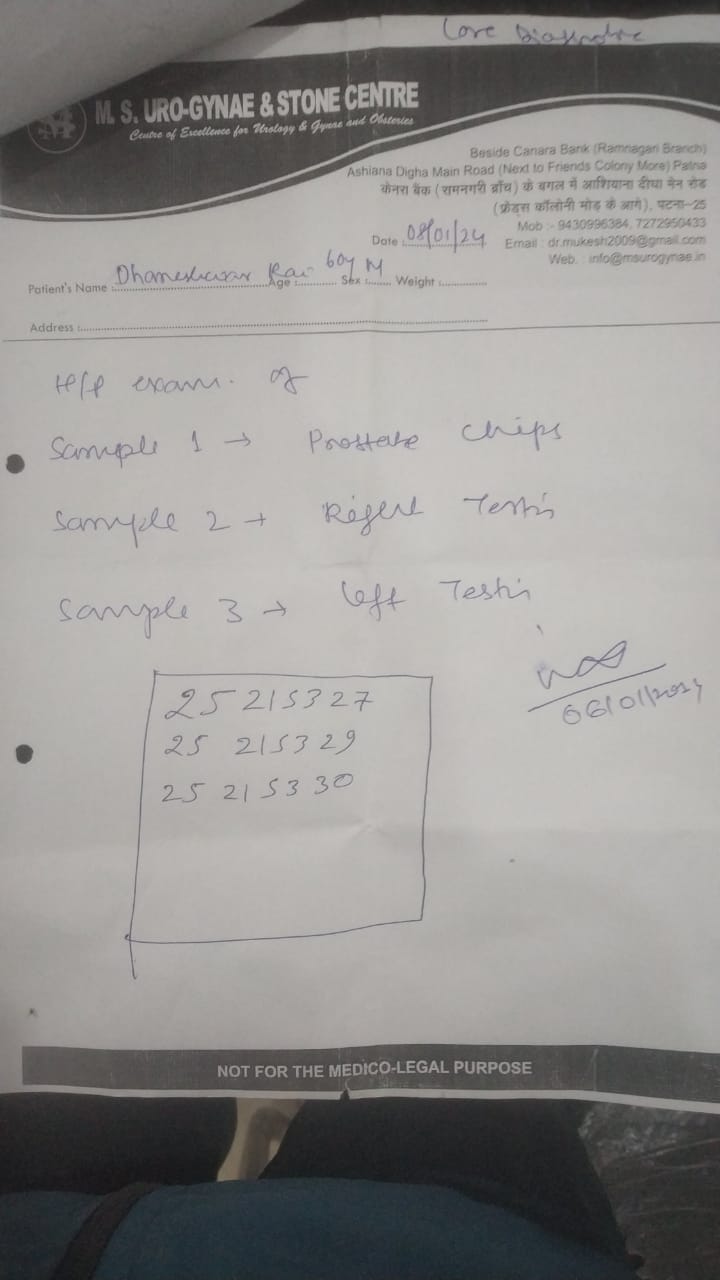 Core Diagnostic
M. S. URO-GYNAE & STONE CENTRE
Centre of Excellence for Urology & Gynae and Obsterics
Beside Canara Bank (Ramnagari Branch)
Ashiana Digha Main Road (Next to Friends Colony More) Patna
केनरा बैंक (रामनगरी ब्राँच) के बगल में आशियाना दीघा मेन रोड
(फ्रेंड्स कॉलोनी मोड़ के आगे), पटना-25
Mob :- 9430996384, 7272950433
Date : 08/01/24 Email : dr.mukesh2009@gmail.com
Web. : info@msurogynae.in
Patient's Name : Dhameshwar Rai Age : 60y Sex : M Weight :
Address :
H/P exam. of
Sample 1 → Prostate chips
Sample 2 → Right Testis
Sample 3 → Left Testis
06/01/2024
25 215327
25 215329
25 215330
NOT FOR THE MEDICO-LEGAL PURPOSE